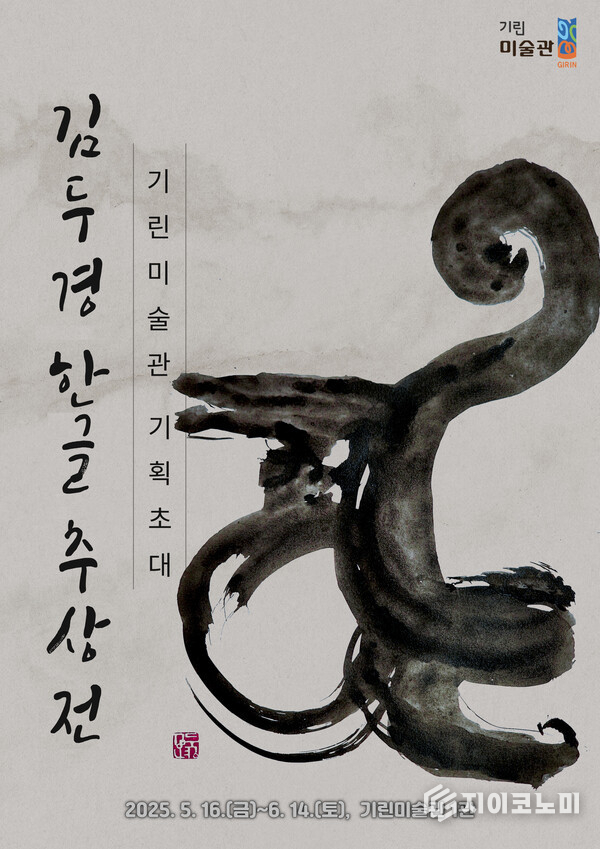 기린
미술관
GIRIN
김두경 한글 추상전
기린미술관 기획초대
2025. 5. 16.(금)~6. 14.(토), 기린미술관
지이코노미